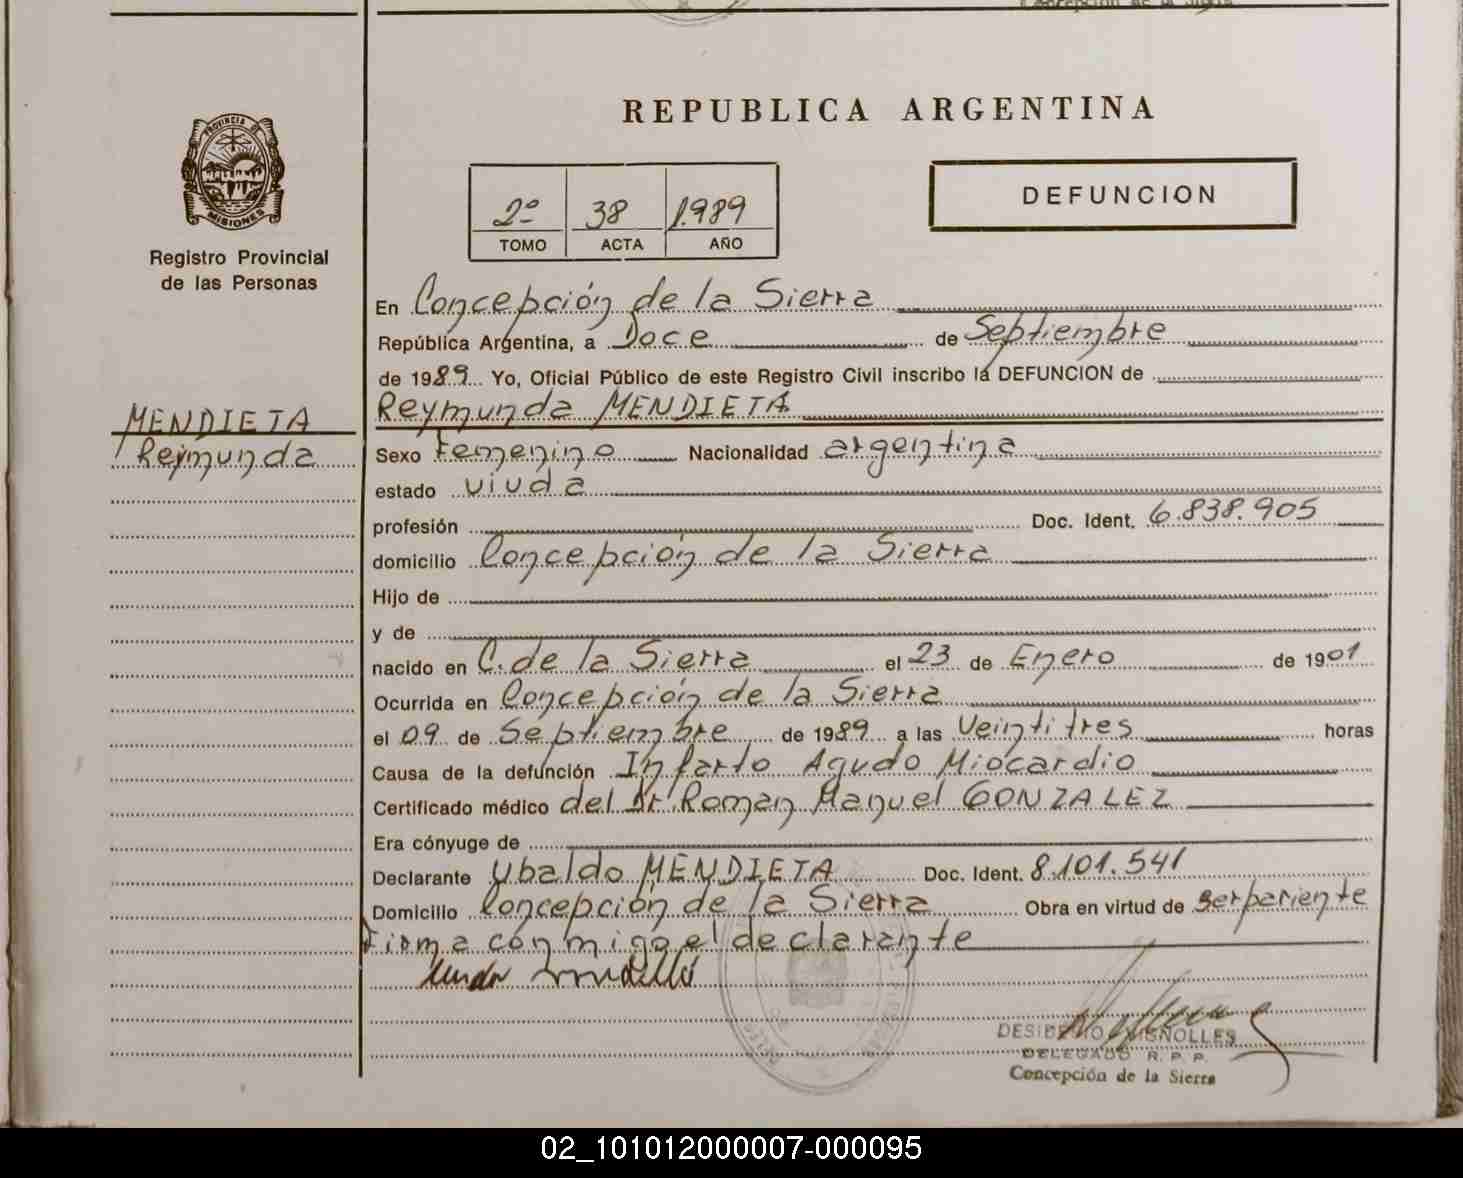 REPUBLICA ARGENTINA
PROVINCIA DE
MISIONES
Registro Provincial
de las Personas
2º 38 1.989
TOMO ACTA AÑO
DEFUNCION
MENDIETA
Reymunda
En Concepción de la Sierra
República Argentina, a Doce de Septiembre
de 1989 Yo, Oficial Público de este Registro Civil inscribo la DEFUNCION de
Reymunda MENDIETA
Sexo Femenino Nacionalidad argentina
estado viuda
profesión Doc. Ident. 6.838.905
domicilio Concepción de la Sierra
Hijo de
y de
nacido en C. de la Sierra el 23 de Enero de 1901
Ocurrida en Concepción de la Sierra
el 09 de Septiembre de 1989 a las Veintitres horas
Causa de la defunción Infarto Agudo Miocardio
Certificado médico del Dr. Roman Manuel GONZALEZ
Era cónyuge de
Declarante Ubaldo MENDIETA Doc. Ident. 8.101.541
Domicilio Concepción de la Sierra Obra en virtud de ser pariente
Firma conmigo el declarante
DELEGADO R. P. P.
Concepción de la Sierra
02_101012000007-000095